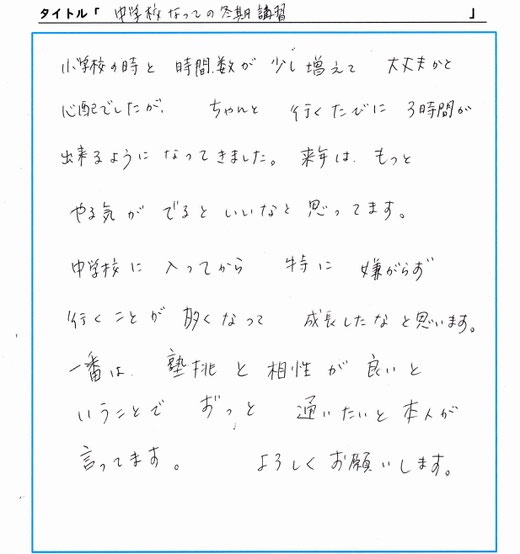 タイトル「 中学校なっての冬期講習 」
小学校の時と 時間数が 少し増えて 大丈夫かと
心配でしたが、 ちゃんと 行くたびに 3時間が
出来るように なってきました。 来年は、もっと
やる気が でるといいなと 思ってます。
中学校に 入ってから 特に 嫌がらず
行くことが 多くなって 成長したなと思います。
一番は、 塾桃と相性が良いと
いうことで ずっと 通いたいと本人が
言ってます。 よろしくお願いします。